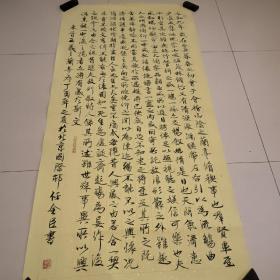 永和九年歲在癸丑暮春之初會于會稽山陰之蘭亭脩禊事也群賢畢至
少長咸集此地有崇山峻領茂林脩竹又有清流激湍暎帶左右引以為流觴曲
水列坐其次雖無絲竹管弦之盛一觴一詠亦足以暢敘幽情是日也天朗氣清惠
風和暢仰觀宇宙之大俯察品類之盛所以遊目騁懷足以極視聽之娛信可樂也夫
人之相與俯仰一世或取諸懷抱悟言一室之內或因寄所託放浪形骸之外雖趣
舍萬殊靜躁不同當其欣於所遇暫得於己快然自足不知老之將至及其所之既
惓情隨事遷感慨係之矣向之所欣俛仰之間以為陳迹猶不能不以之興懷況
脩短隨化終期於盡古人云死生亦大矣豈不痛哉每攬昔人興感之由若合一契
未嘗不臨文嗟悼不能喻之於懷固知一死生為虛誕齊彭殤為妄作後
之視今亦由今之視昔悲夫故列敘時人錄其所述雖世殊事異所以興
懷其致一也後之覽者亦將有感於斯文
東晉王羲之蘭亭序丁酉年之夏於北京國際 任金臣書